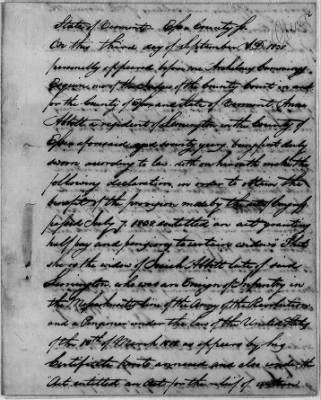 State of Vermont Essex County Ss
On this Third day of September AD 1838
personally appeared before me
one of the Judges of the County Court in and
for the County of Essex and State of Vermont Anna
Abbott a resident of Lemington in the County of
Essex aforesaid aged seventy years being first duly
sworn according to law doth on her oath make the
following declaration in order to obtain the
benefit of the provision made by the act of Congress
passed July 7. 1838 entitled an act granting
half pay and pensions to certain widows That
she is the widow of Abbott late of said
Lemington who was an Ensign of Infantry in
the Massachusetts line of the Army of the Revolution
and a Pensioner under the law of the United States
of the 18th of March 1818 as appears by his
Certificate hereto annexed and also under the
Act entitled an Act for the relief of certain